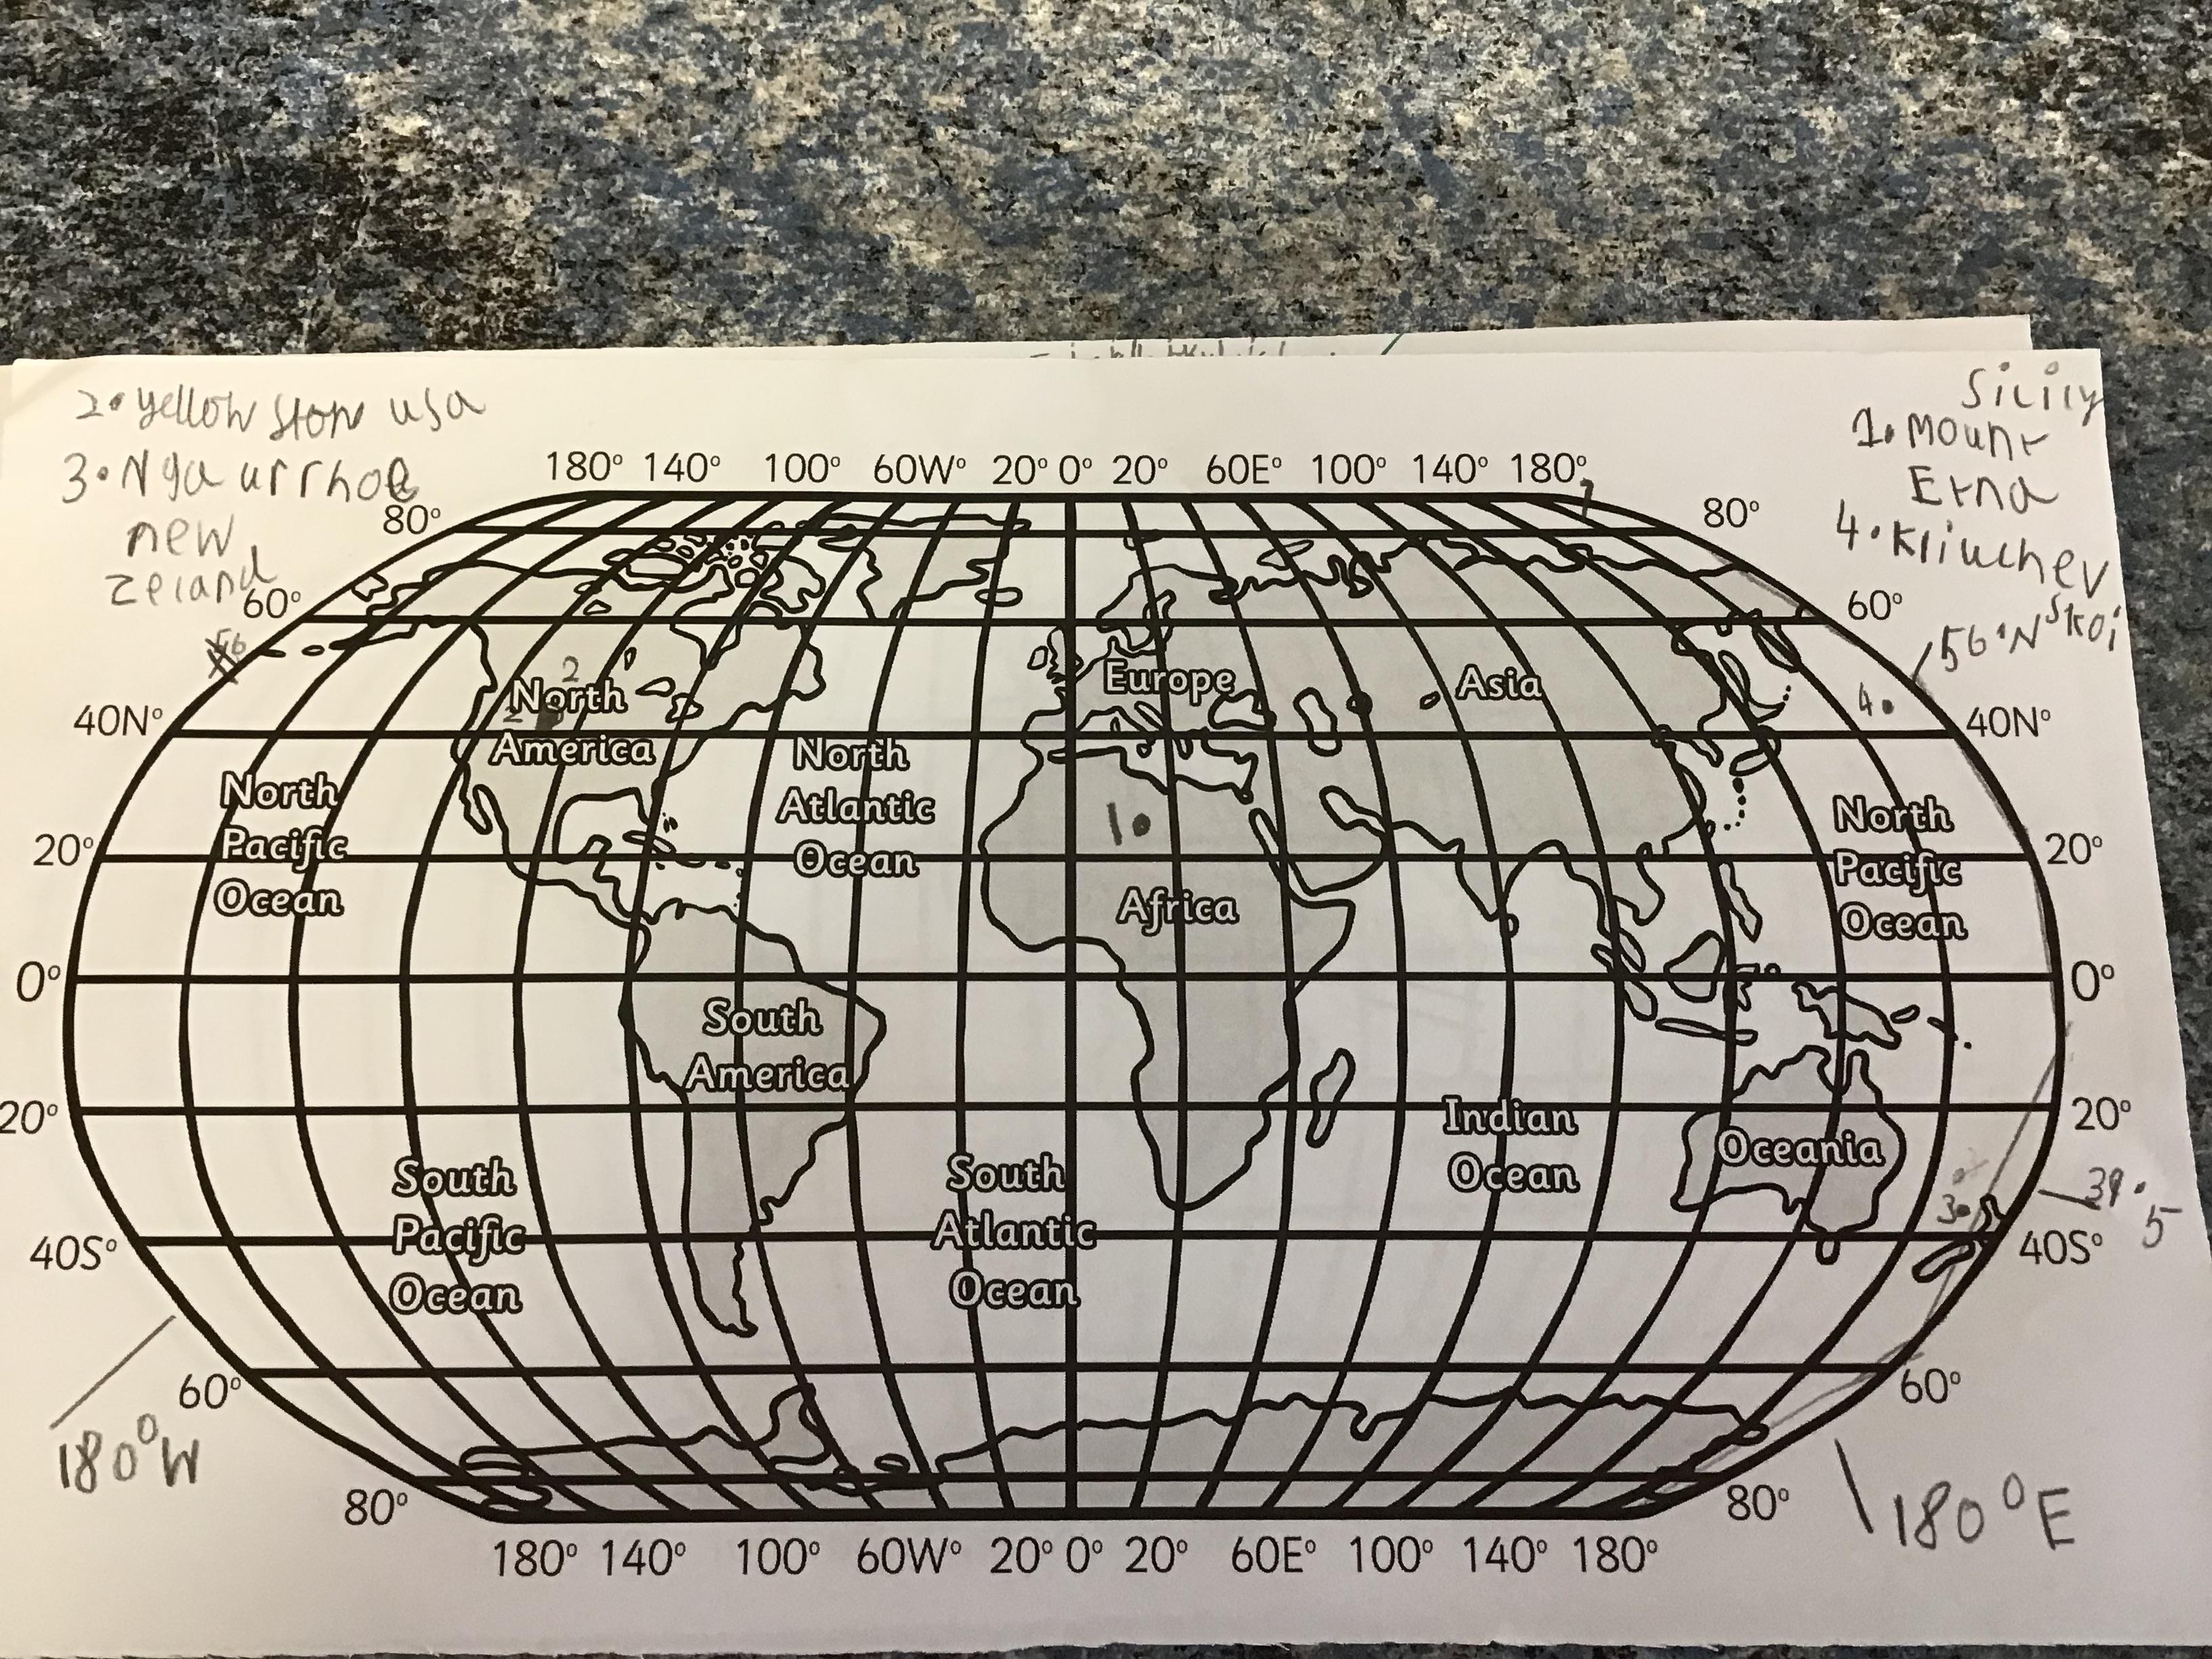 2. yellow ston usa
3. Nga urrhoe
new
zeland
Sicily
1. Mount
Etna
4. Kliuchev
skoi
56°N
180° 140° 100° 60W° 20° 0° 20° 60E° 100° 140° 180°
80° 80°
60° 60°
56
2
North
America
Europe
Asia
4.
40N° 40N°
North
Pacific
Ocean
North
Atlantic
Ocean
1.
North
Pacific
Ocean
20° 20°
Africa
0° 0°
South
America
20° 20°
Indian
Ocean
Oceania
South
Pacific
Ocean
South
Atlantic
Ocean
39.
5
3.
40S° 40S°
60° 60°
180°W
180°E
80° 80°
180° 140° 100° 60W° 20° 0° 20° 60E° 100° 140° 180°